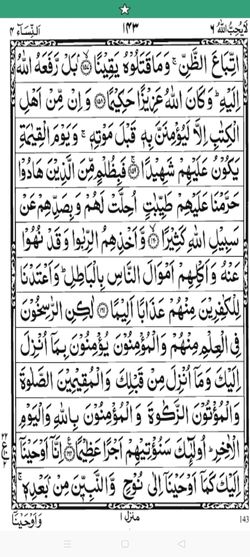 لَا يُحِبُّ اللّٰهُ ٦ ١٤٣ اَلنِّسَآء ٤
اتِّبَاعَ الظَّنِّ ۚ وَمَا قَتَلُوْهُ يَقِيْنًۢا ﴿١٥٧﴾ بَلْ رَّفَعَهُ اللّٰهُ
اِلَيْهِ ؕ وَكَانَ اللّٰهُ عَزِيْزًا حَكِيْمًا ﴿١٥٨﴾ وَاِنْ مِّنْ اَهْلِ
الْكِتٰبِ اِلَّا لَيُؤْمِنَنَّ بِهٖ قَبْلَ مَوْتِهٖ ۚ وَيَوْمَ الْقِيٰمَةِ
يَكُوْنُ عَلَيْهِمْ شَهِيْدًا ﴿١٥٩﴾ فَبِظُلْمٍ مِّنَ الَّذِيْنَ هَادُوْا
حَرَّمْنَا عَلَيْهِمْ طَيِّبٰتٍ اُحِلَّتْ لَهُمْ وَبِصَدِّهِمْ عَنْ
سَبِيْلِ اللّٰهِ كَثِيْرًا ﴿١٦٠﴾ وَّاَخْذِهِمُ الرِّبٰوا وَقَدْ نُهُوْا
عَنْهُ وَاَكْلِهِمْ اَمْوَالَ النَّاسِ بِالْبَاطِلِ ؕ وَاَعْتَدْنَا
لِلْكٰفِرِيْنَ مِنْهُمْ عَذَابًا اَلِيْمًا ﴿١٦١﴾ لٰكِنِ الرّٰسِخُوْنَ
فِى الْعِلْمِ مِنْهُمْ وَالْمُؤْمِنُوْنَ يُؤْمِنُوْنَ بِمَاۤ اُنْزِلَ
اِلَيْكَ وَمَاۤ اُنْزِلَ مِنْ قَبْلِكَ وَالْمُقِيْمِيْنَ الصَّلٰوةَ
وَالْمُؤْتُوْنَ الزَّكٰوةَ وَالْمُؤْمِنُوْنَ بِاللّٰهِ وَالْيَوْمِ
الْاٰخِرِ ؕ اُولٰٓئِكَ سَنُؤْتِيْهِمْ اَجْرًا عَظِيْمًا ﴿١٦٢﴾ اِنَّاۤ اَوْحَيْنَاۤ
اِلَيْكَ كَمَاۤ اَوْحَيْنَاۤ اِلٰى نُوْحٍ وَّالنَّبِيّٖنَ مِنْۢ بَعْدِهٖ ۚ
منزل ١ وَاَوْحَيْنَاۤ
143